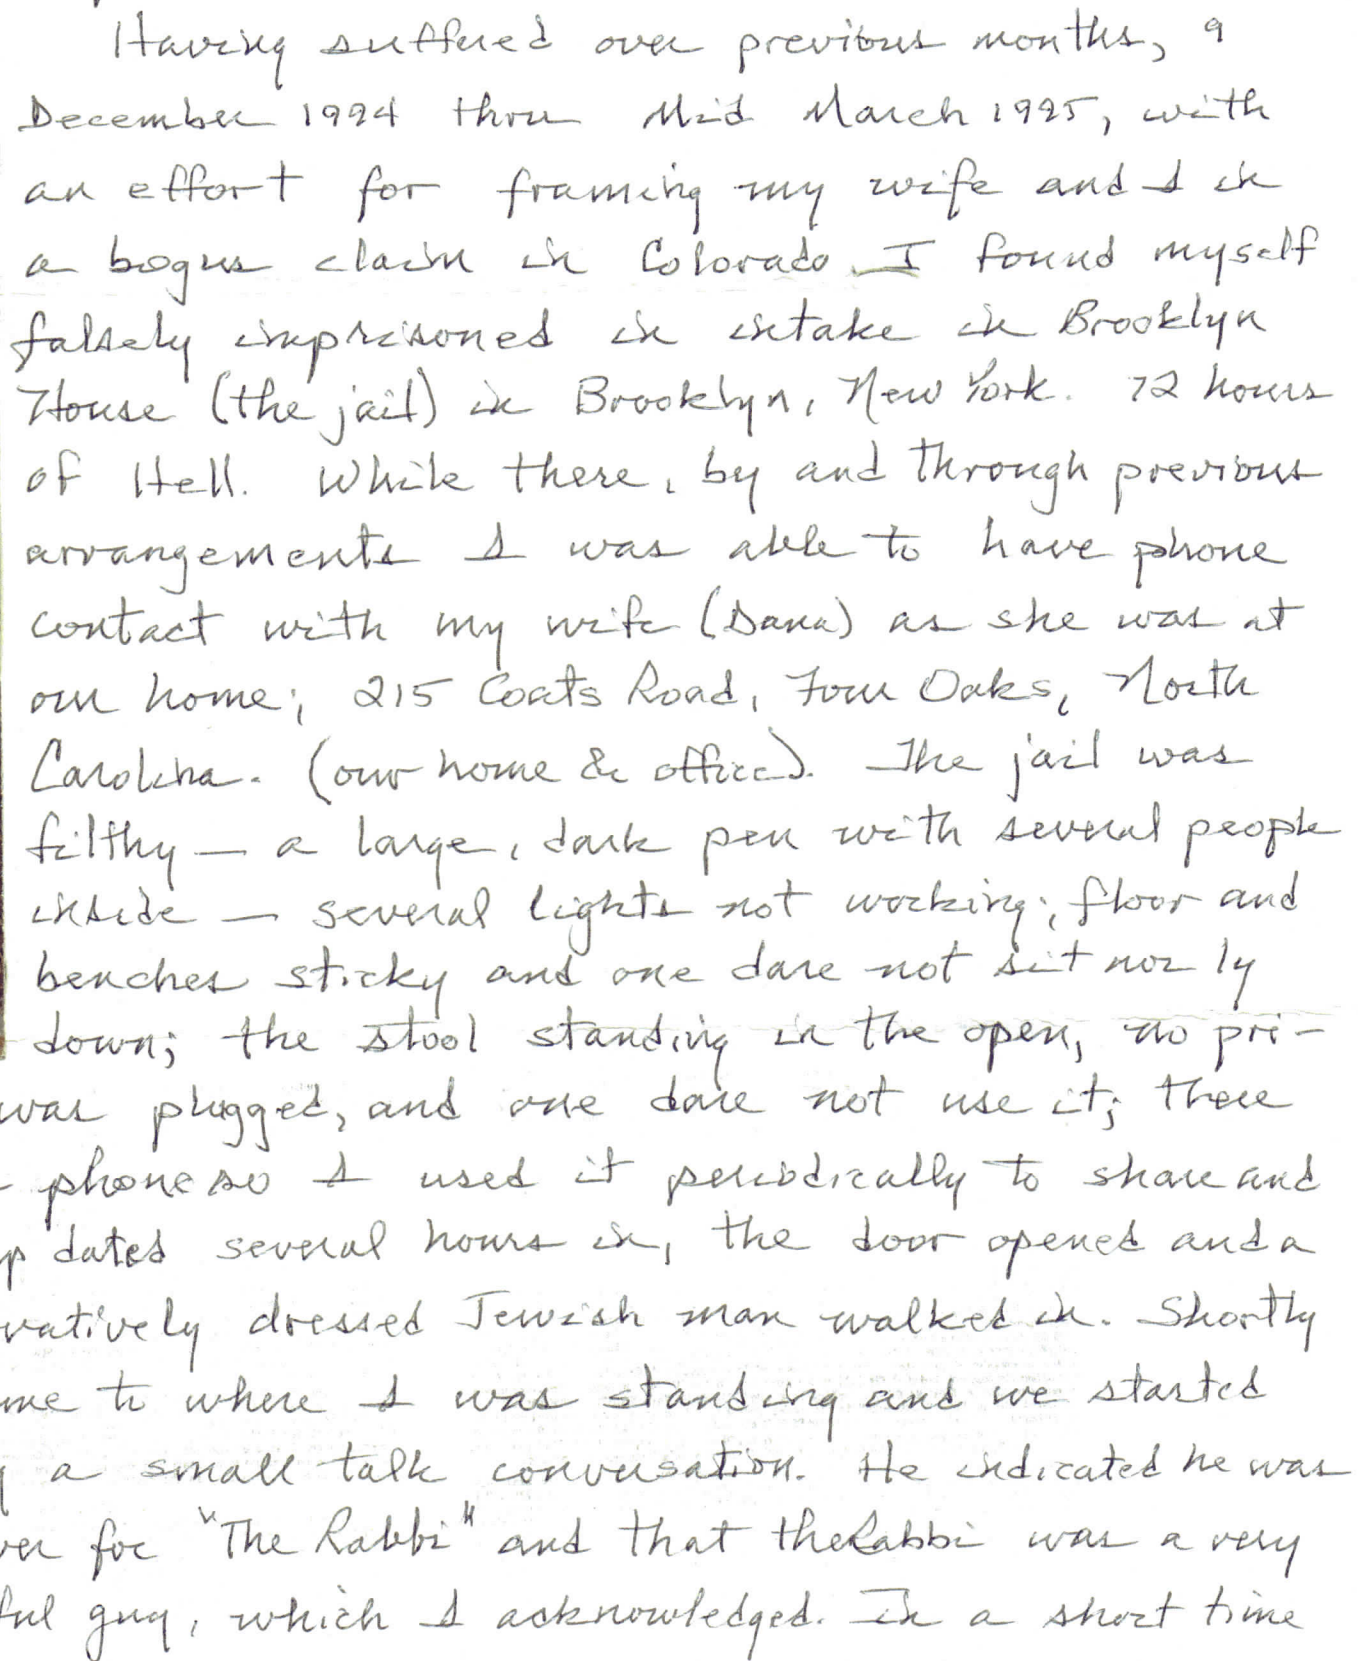 Having suffered over previous months, 9
December 1994 thru Mid March 1995, with
an effort for framing my wife and I in
a bogus claim in Colorado. I found myself
falsely imprisoned in intake in Brooklyn
House (the jail) in Brooklyn, New York. 72 hours
of Hell. While there, by and through previous
arrangements I was able to have phone
contact with my wife (Dana) as she was at
our home; 215 Coats Road, Four Oaks, North
Carolina. (our home & office). The jail was
filthy — a large, dark pen with several people
inside — several lights not working; floor and
benches sticky and one dare not sit nor ly
down; the stool standing in the open, no pri-
was plugged, and one dare not use it; there
phone so I used it periodically to share and
p dated several hours in, the door opened and a
vatively dressed Jewish man walked in. Shortly
me to where I was standing and we started
a small talk conversation. He indicated he was
ver for "The Rabbi" and that the Rabbi was a very
ful guy, which I acknowledged. In a short time